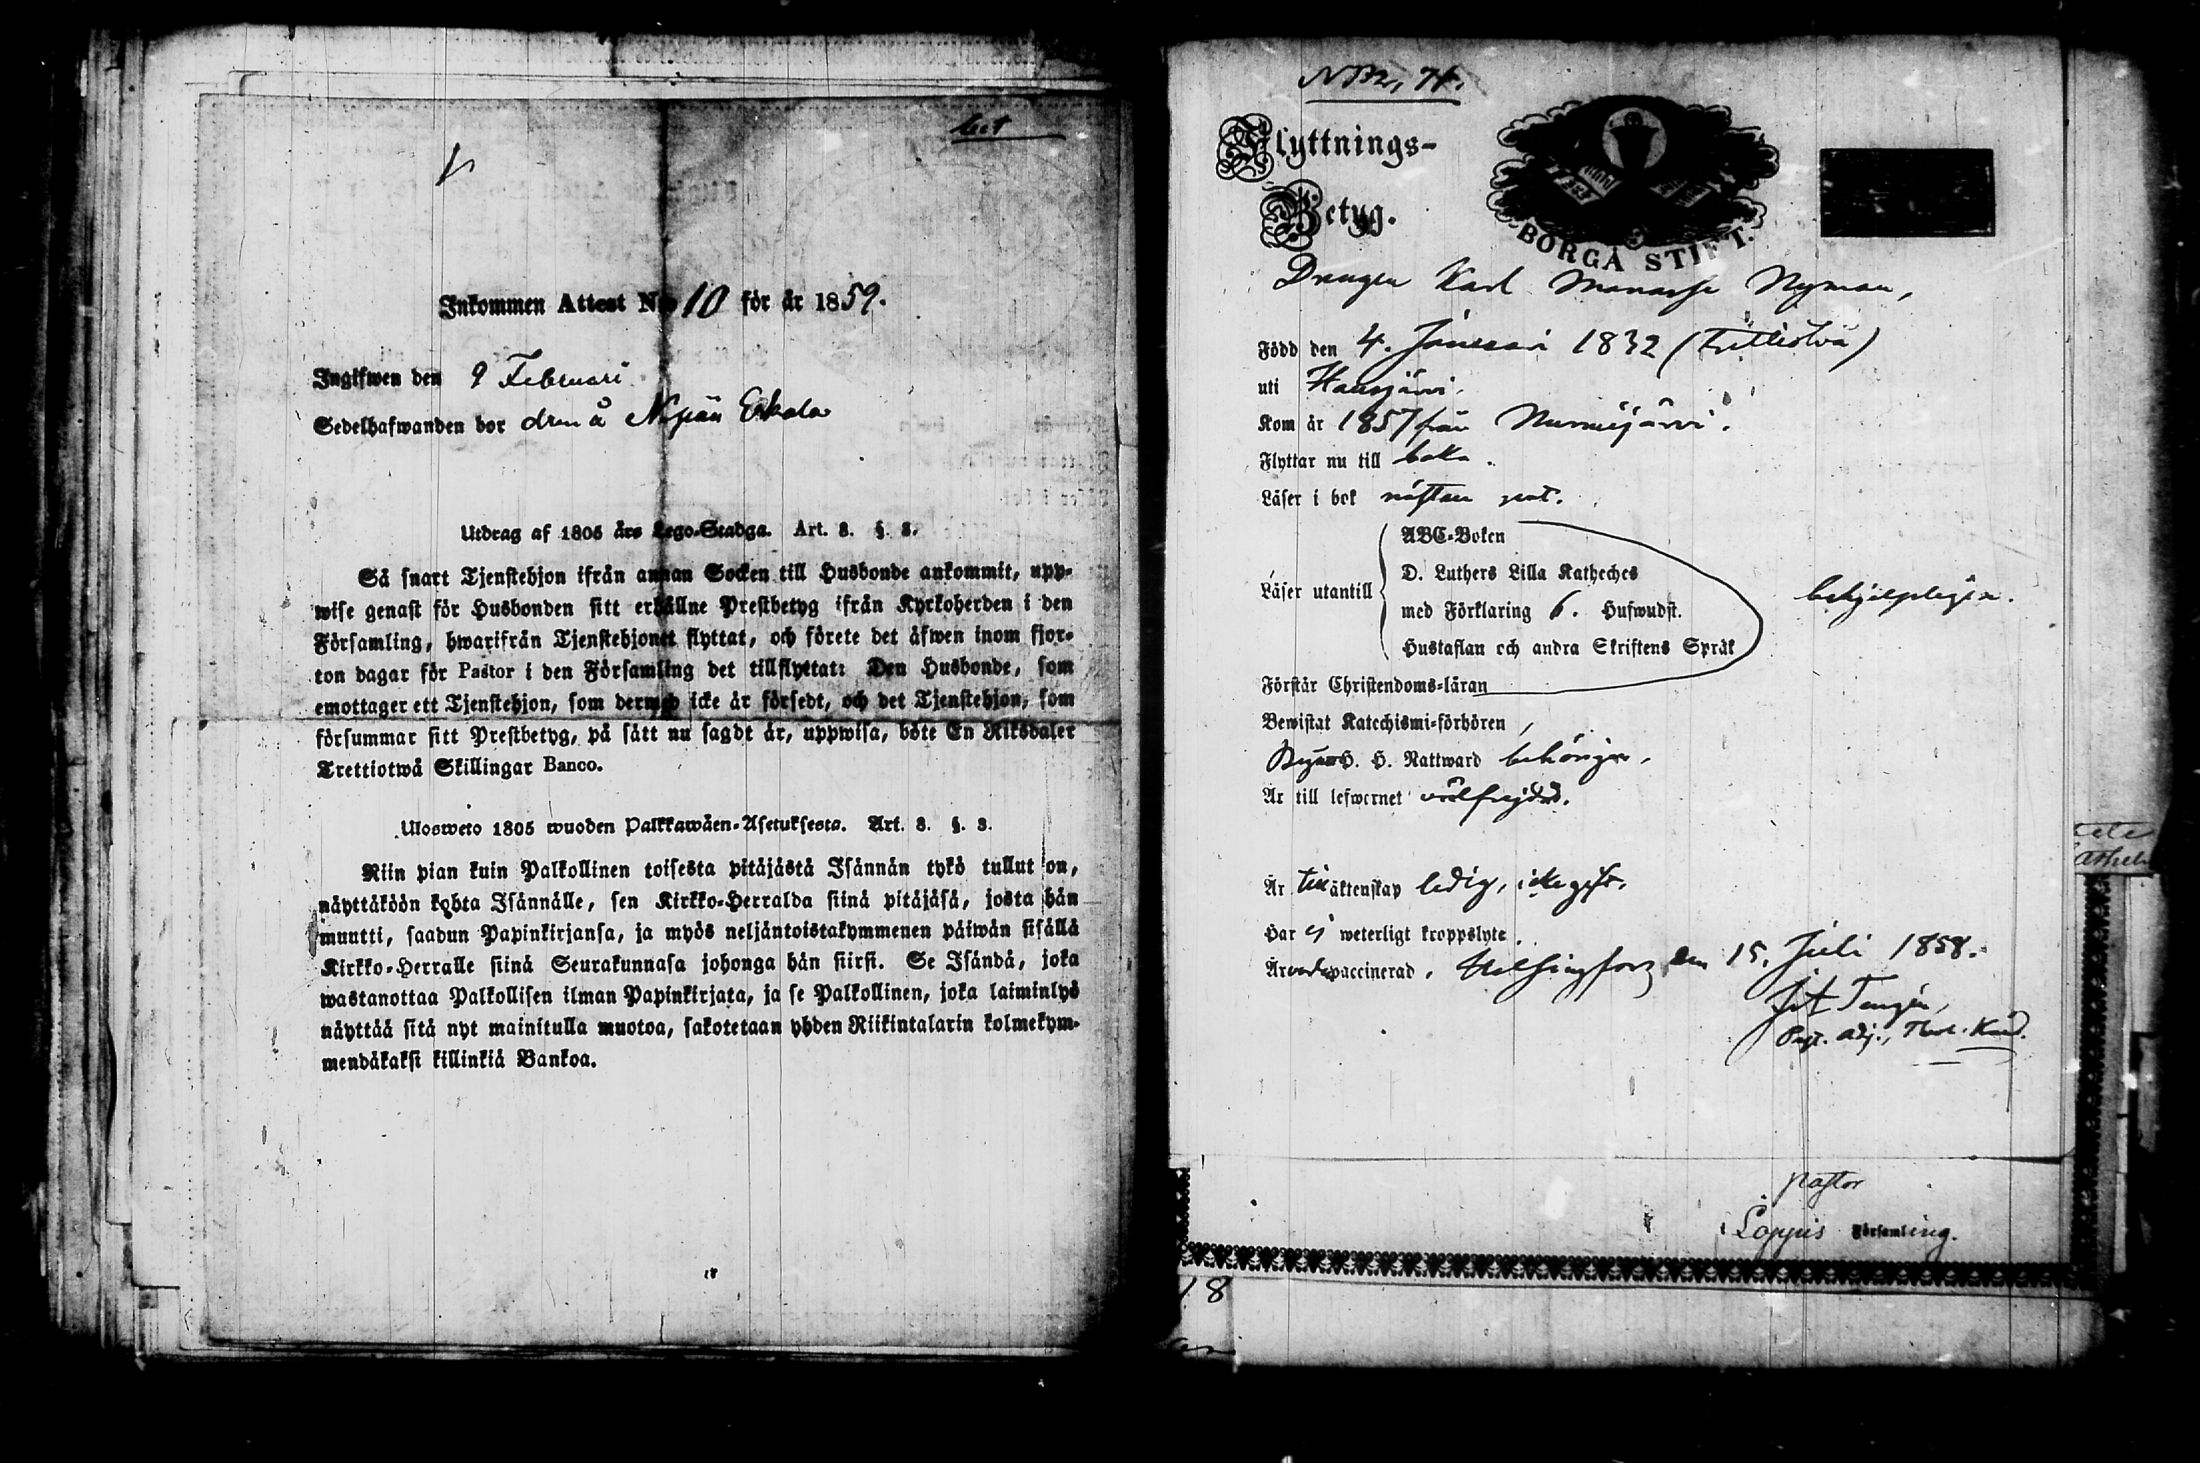 Inkommen Attest N:o 10 för år 1859.
Ingifwen den 9 Februari
Sedelhafwanden bor dräng å Nypån Erkola
Utdrag af 1805 års Lego-Stadga. Art. 3. §. 3.
Så snart Tjenstehjon ifrån annan Socken till Husbonde ankommit, upp-
wise genast för Husbonden sitt erhållne Prestbetyg ifrån Kyrkoherden i den
Församling, hwarifrån Tjenstehjonet flyttat, och förete det äfwen inom fjor-
ton dagar för Pastor i den Församling det tillflyttat: Den Husbonde, som
emottager ett Tjenstehjon, som dermed icke är försedt, och det Tjenstehjon, som
försummar sitt Prestbetyg, på sätt nu sagdt är, uppwisa, böte En Riksdaler
Trettiotwå Skillingar Banco.
Ulosweto 1805 wuoden Palkkawäen-Asetuksesta. Art. 3. §. 3.
Niin pian kuin Palkollinen toisesta pitäjästä Isännän tykö tullut on,
näyttäköön kohta Isännälle, sen Kirkko-Herralda siinä pitäjäsä, josta hän
muutti, saadun Papinkirjansa, ja myös neljäntoistakymmenen päiwän sisällä
Kirkko-Herralle siinä Seurakunnasa johonga hän siirsi. Se Isändä, joka
wastanottaa Palkollisen ilman Papinkirjata, ja se Palkollinen, joka laiminlyö
näyttää sitä nyt mainitulla muotoa, sakotetaan yhden Riikintalarin kolmekym-
mendäkaksi killinkiä Bankoa.
Flyttnings-
Betyg.
BORGÅ STIFT.
Drängen Karl Manasse Nyman,
Född den 4. Januari 1832 (Trettiotvå)
uti Hausjärvi.
Kom år 1857 från Nurmijärvi.
Flyttar nu till baka.
Läser i bok nästan rent.
Läser utantill
ABC-Boken
D. Luthers Lilla Katheches
med Förklaring 6. Hufwudst.
Hustaflan och andra Skriftens Språk
behjelpligen.
Förstår Christendoms-läran
Bewistat Katechismi-förhören
Begått H. H. Nattward behörigen,
Är till lefwernet välfrejdad.
Är till äktenskap ledig, icke gift.
Har ej weterligt kroppslyte.
Är vaccinerad. Helsingfors den 15. Juli 1858.
Past. adj., Theol. Kand.
Pastor
i Loppis Församling.
18